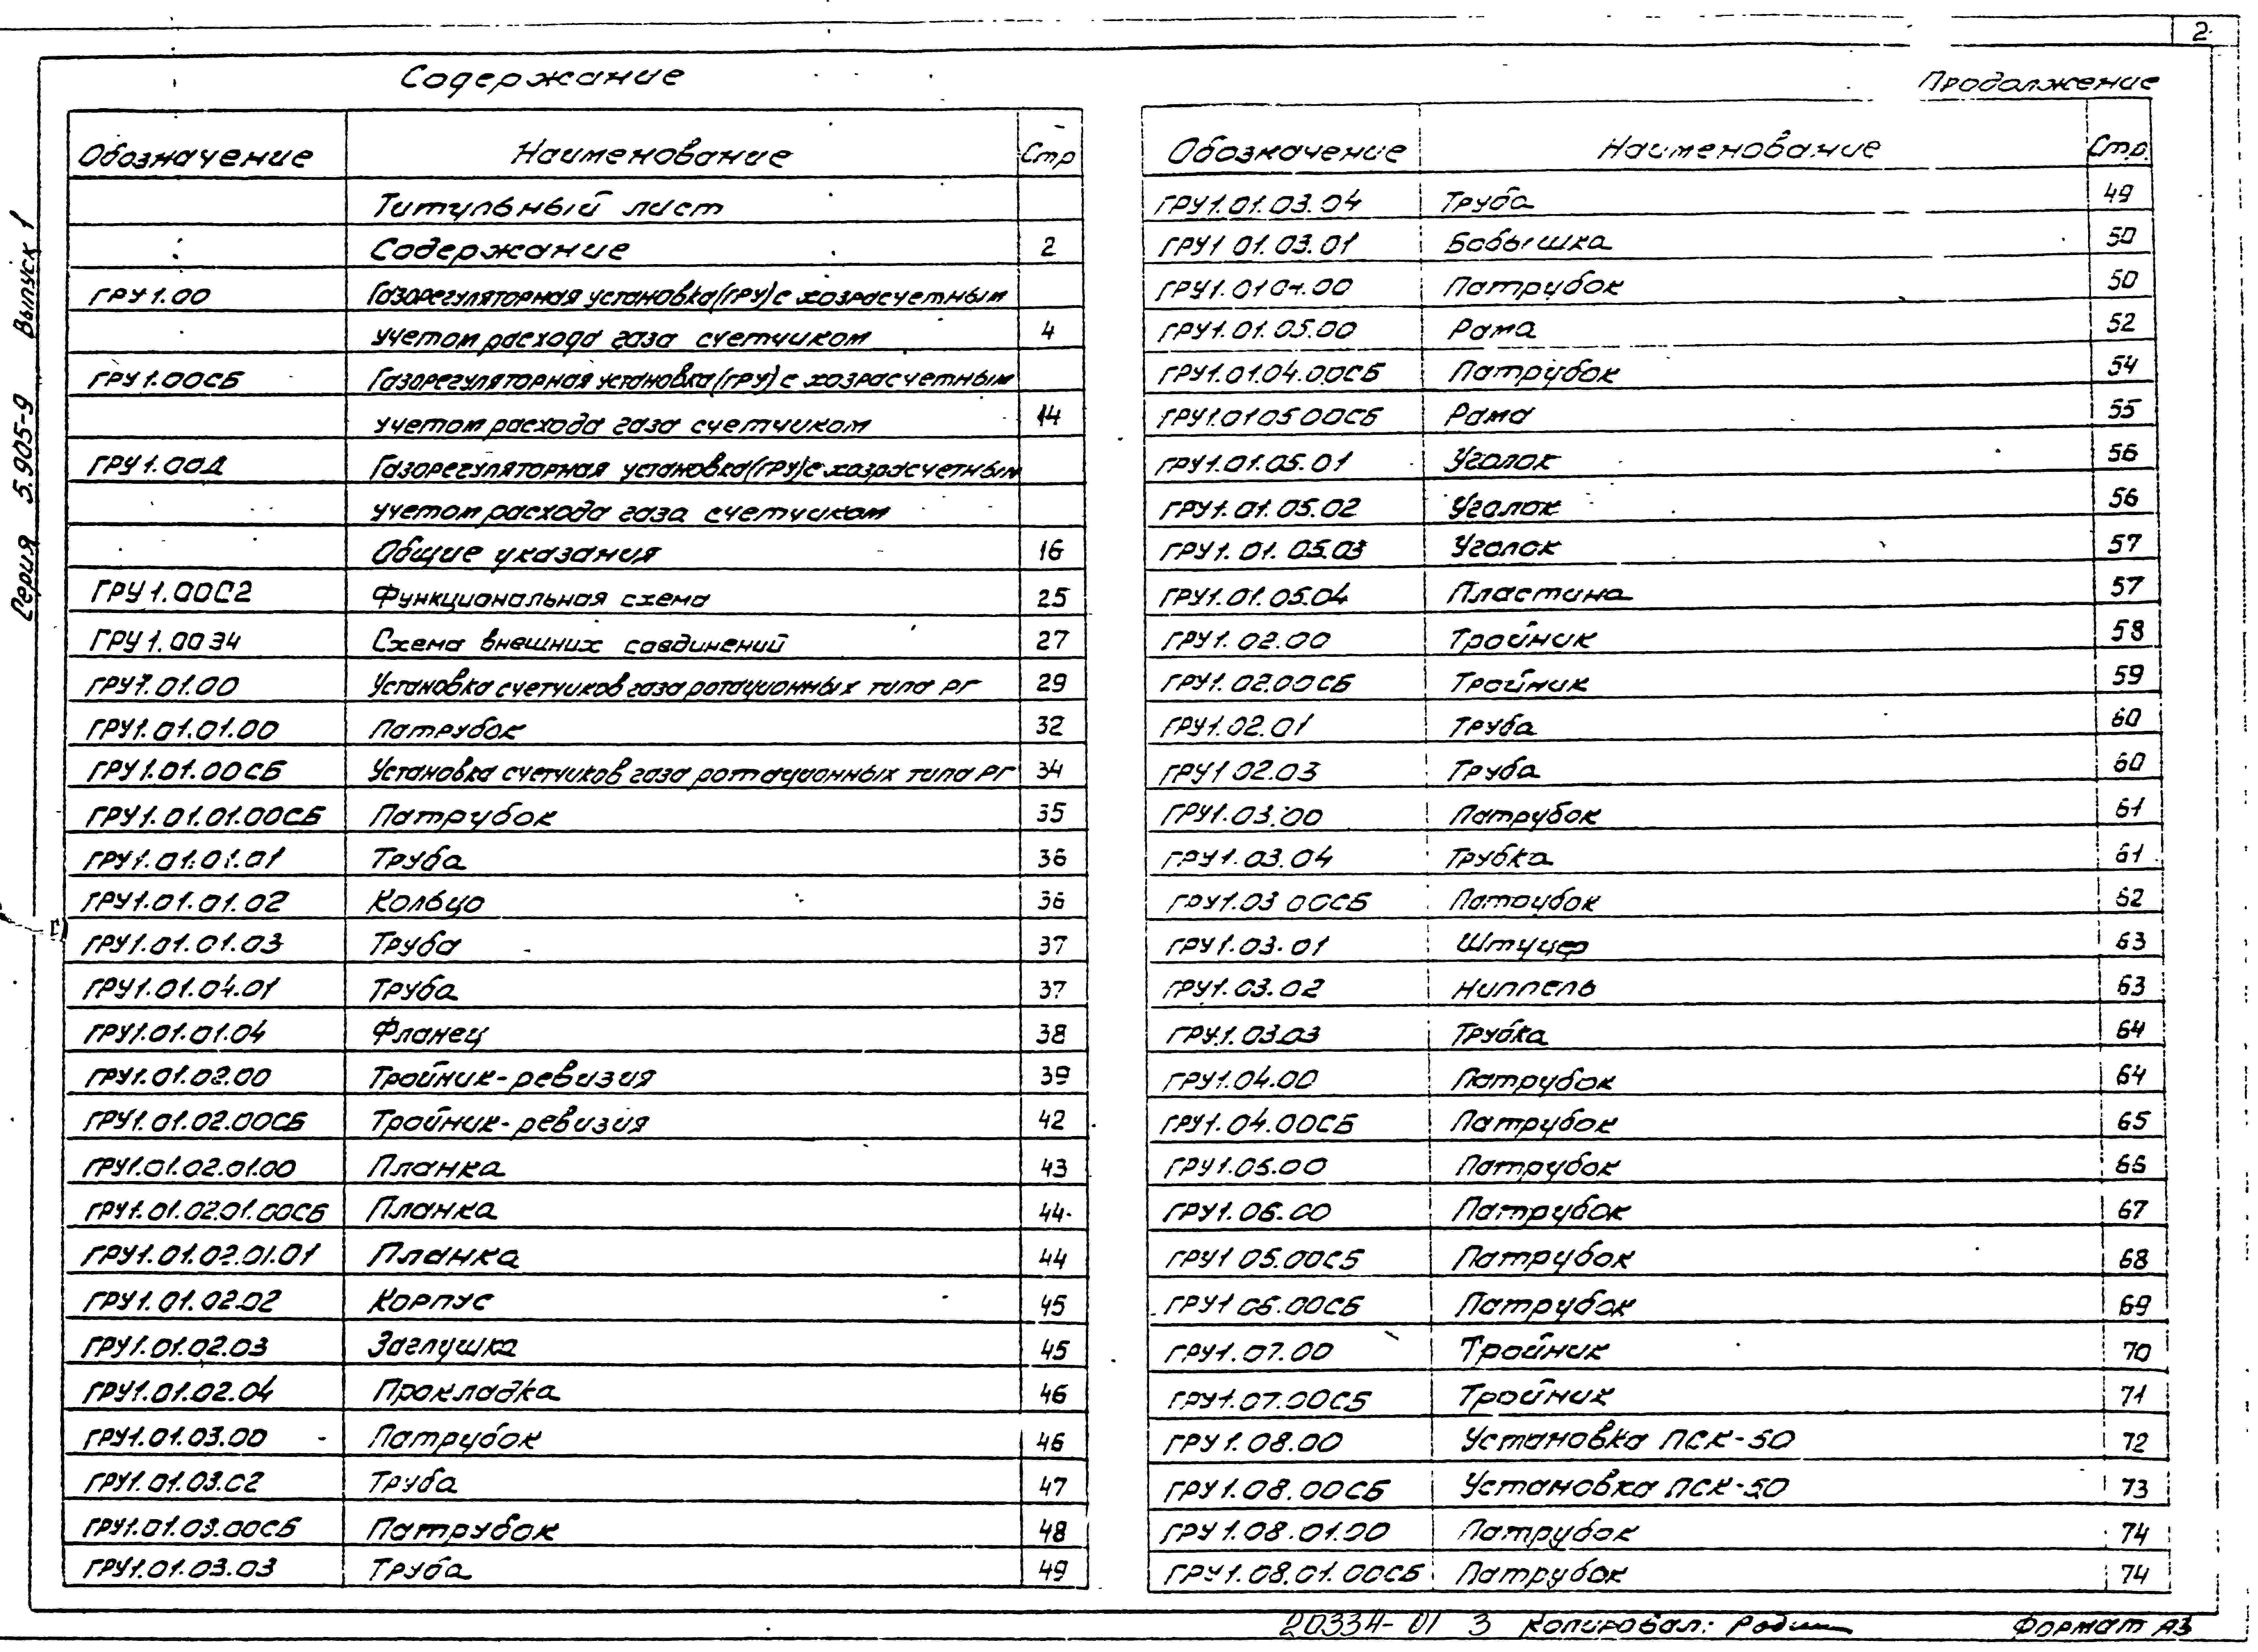 2
Содержание
Обозначение Наименование Стр
Титульный лист
Содержание 2
ГРУ 1.00 Газорегуляторная установка (ГРУ) с хозрасчетным
учетом расхода газа счетчиком 4
ГРУ 1.00СБ Газорегуляторная установка (ГРУ) с хозрасчетным
учетом расхода газа счетчиком 14
ГРУ 1.00Д Газорегуляторная установка (ГРУ) с хозрасчетным
учетом расхода газа счетчиком
Общие указания 16
ГРУ 1.00С2 Функциональная схема 25
ГРУ 1.00Э4 Схема внешних соединений 27
ГРУ1.01.00 Установка счетчиков газа ротационных типа РГ 29
ГРУ1.01.01.00 Патрубок 32
ГРУ1.01.00СБ Установка счетчиков газа ротационных типа РГ 34
ГРУ1.01.01.00СБ Патрубок 35
ГРУ1.01.01.01 Труба 36
ГРУ1.01.01.02 Кольцо 36
ГРУ1.01.01.03 Труба 37
ГРУ1.01.04.01 Труба 37
ГРУ1.01.01.04 Фланец 38
ГРУ1.01.02.00 Тройник-ревизия 39
ГРУ1.01.02.00СБ Тройник-ревизия 42
ГРУ1.01.02.01.00 Планка 43
ГРУ1.01.02.01.00СБ Планка 44
ГРУ1.01.02.01.01 Планка 44
ГРУ1.01.02.02 Корпус 45
ГРУ1.01.02.03 Заглушка 45
ГРУ1.01.02.04 Прокладка 46
ГРУ1.01.03.00 Патрубок 46
ГРУ1.01.03.02 Труба 47
ГРУ1.01.03.00СБ Патрубок 48
ГРУ1.01.03.03 Труба 49
Продолжение
Обозначение Наименование Стр.
ГРУ1.01.03.04 Труба 49
ГРУ1 01.03.01 Бобышка 50
ГРУ1.01 04.00 Патрубок 50
ГРУ1.01.05.00 Рама 52
ГРУ1.01.04.00СБ Патрубок 54
ГРУ1.01 05 00СБ Рама 55
ГРУ1.01.05.01 Уголок 56
ГРУ1.01.05.02 Уголок 56
ГРУ1.01.05.03 Уголок 57
ГРУ1.01.05.04 Пластина 57
ГРУ1.02.00 Тройник 58
ГРУ1.02.00СБ Тройник 59
ГРУ1.02.01 Труба 60
ГРУ1 02.03 Труба 60
ГРУ1.03.00 Патрубок 61
ГРУ1.03.04 Трубка 61
ГРУ1.03 00СБ Патрубок 62
ГРУ1.03.01 Штуцер 63
ГРУ1.03.02 Ниппель 63
ГРУ1.03.03 Трубка 64
ГРУ1.04.00 Патрубок 64
ГРУ1.04.00СБ Патрубок 65
ГРУ1.05.00 Патрубок 66
ГРУ1.06.00 Патрубок 67
ГРУ1 05.00СБ Патрубок 68
ГРУ1 06.00СБ Патрубок 69
ГРУ1.07.00 Тройник 70
ГРУ1.07.00СБ Тройник 71
ГРУ1.08.00 Установка ПСК-50 72
ГРУ1.08.00СБ Установка ПСК-50 73
ГРУ1.08.01.00 Патрубок 74
ГРУ1.08.01.00СБ Патрубок 74
Серия 5.905-9 Выпуск 1
20334-01 3 Копировал: Родин Формат А3